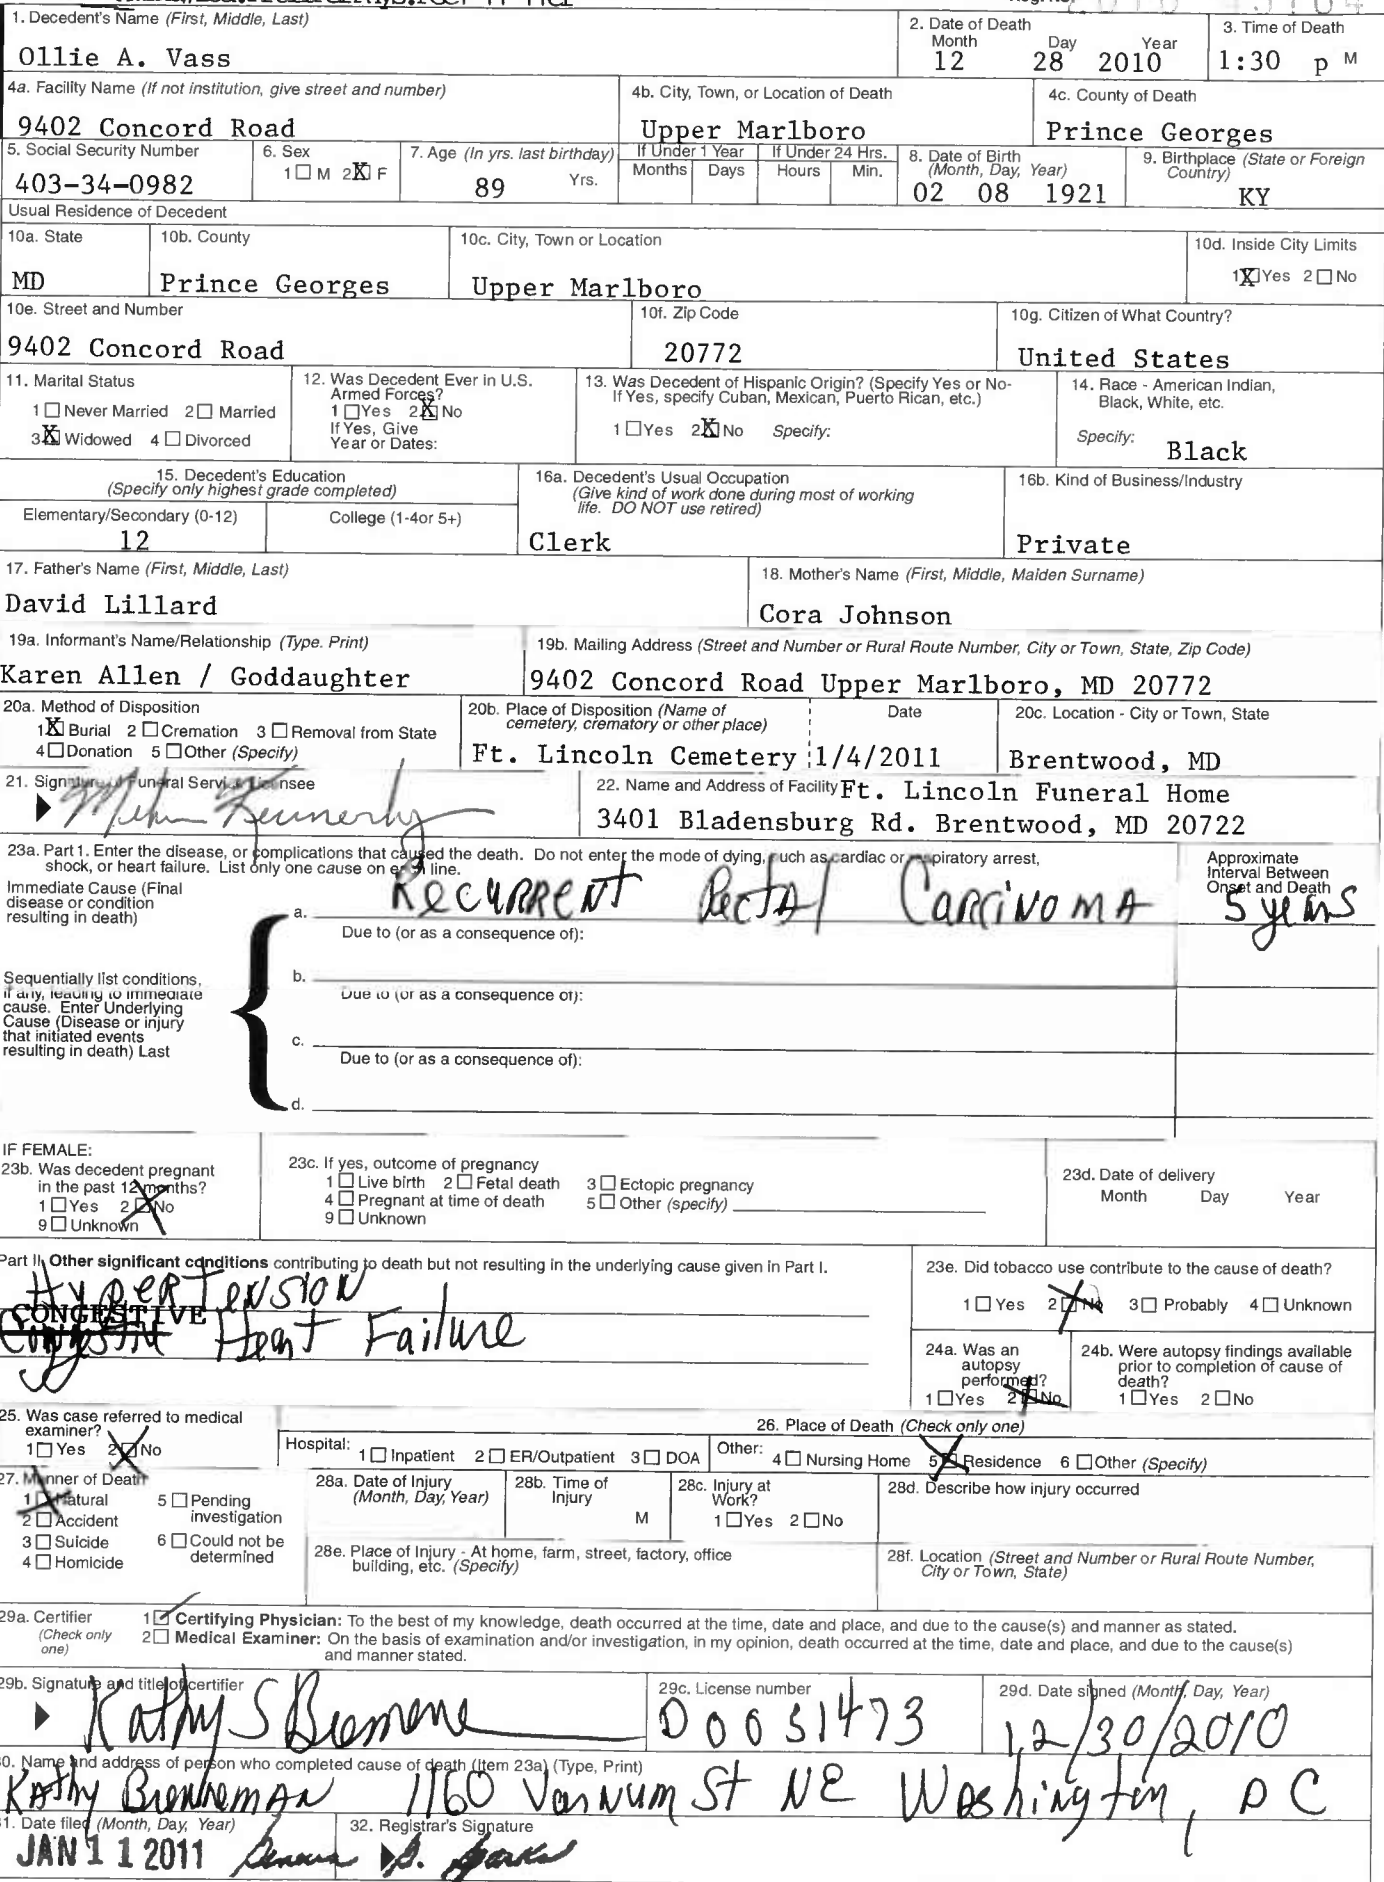 1. Decedent's Name (First, Middle, Last)
Ollie A. Vass
2. Date of Death
Month Day Year
12 28 2010
3. Time of Death
1:30 p M
4a. Facility Name (If not institution, give street and number)
9402 Concord Road
4b. City, Town, or Location of Death
Upper Marlboro
4c. County of Death
Prince Georges
5. Social Security Number
403-34-0982
6. Sex
1 M 2 X F
7. Age (In yrs. last birthday)
89 Yrs.
If Under 1 Year
Months Days
If Under 24 Hrs.
Hours Min.
8. Date of Birth
(Month, Day, Year)
02 08 1921
9. Birthplace (State or Foreign
Country)
KY
Usual Residence of Decedent
10a. State
MD
10b. County
Prince Georges
10c. City, Town or Location
Upper Marlboro
10d. Inside City Limits
1 X Yes 2 No
10e. Street and Number
9402 Concord Road
10f. Zip Code
20772
10g. Citizen of What Country?
United States
11. Marital Status
1 Never Married 2 Married
3 X Widowed 4 Divorced
12. Was Decedent Ever in U.S.
Armed Forces?
1 Yes 2 X No
If Yes, Give
Year or Dates:
13. Was Decedent of Hispanic Origin? (Specify Yes or No-
If Yes, specify Cuban, Mexican, Puerto Rican, etc.)
1 Yes 2 X No Specify:
14. Race - American Indian,
Black, White, etc.
Specify: Black
15. Decedent's Education
(Specify only highest grade completed)
Elementary/Secondary (0-12)
12
College (1-4or 5+)
16a. Decedent's Usual Occupation
(Give kind of work done during most of working
life. DO NOT use retired)
Clerk
16b. Kind of Business/Industry
Private
17. Father's Name (First, Middle, Last)
David Lillard
18. Mother's Name (First, Middle, Maiden Surname)
Cora Johnson
19a. Informant's Name/Relationship (Type. Print)
Karen Allen / Goddaughter
19b. Mailing Address (Street and Number or Rural Route Number, City or Town, State, Zip Code)
9402 Concord Road Upper Marlboro, MD 20772
20a. Method of Disposition
1 X Burial 2 Cremation 3 Removal from State
4 Donation 5 Other (Specify)
20b. Place of Disposition (Name of
cemetery, crematory or other place)
Ft. Lincoln Cemetery
Date
1/4/2011
20c. Location - City or Town, State
Brentwood, MD
21. Signature of Funeral Service Licensee
22. Name and Address of Facility Ft. Lincoln Funeral Home
3401 Bladensburg Rd. Brentwood, MD 20722
23a. Part 1. Enter the disease, or complications that caused the death. Do not enter the mode of dying, such as cardiac or respiratory arrest,
shock, or heart failure. List only one cause on each line.
Immediate Cause (Final
disease or condition
resulting in death)
a. Recurrent Rectal Carcinoma
Approximate
Interval Between
Onset and Death
5 years
Due to (or as a consequence of):
Sequentially list conditions,
if any, leading to immediate
cause. Enter Underlying
Cause (Disease or injury
that initiated events
resulting in death) Last
b.
Due to (or as a consequence of):
c.
Due to (or as a consequence of):
d.
IF FEMALE:
23b. Was decedent pregnant
in the past 12 months?
1 Yes 2 X No
9 Unknown
23c. If yes, outcome of pregnancy
1 Live birth 2 Fetal death 3 Ectopic pregnancy
4 Pregnant at time of death 5 Other (specify)
9 Unknown
23d. Date of delivery
Month Day Year
Part II. Other significant conditions contributing to death but not resulting in the underlying cause given in Part I.
Hypertension
CONGESTIVE
Congestive Heart Failure
23e. Did tobacco use contribute to the cause of death?
1 Yes 2 X No 3 Probably 4 Unknown
24a. Was an
autopsy
performed?
1 Yes 2 X No
24b. Were autopsy findings available
prior to completion of cause of
death?
1 Yes 2 No
25. Was case referred to medical
examiner?
1 Yes 2 X No
26. Place of Death (Check only one)
Hospital: 1 Inpatient 2 ER/Outpatient 3 DOA
Other: 4 Nursing Home 5 X Residence 6 Other (Specify)
27. Manner of Death
1 X Natural
2 Accident
3 Suicide
4 Homicide
5 Pending
investigation
6 Could not be
determined
28a. Date of Injury
(Month, Day, Year)
28b. Time of
Injury
M
28c. Injury at
Work?
1 Yes 2 No
28d. Describe how injury occurred
28e. Place of Injury - At home, farm, street, factory, office
building, etc. (Specify)
28f. Location (Street and Number or Rural Route Number,
City or Town, State)
29a. Certifier
(Check only
one)
1 ✓ Certifying Physician: To the best of my knowledge, death occurred at the time, date and place, and due to the cause(s) and manner as stated.
2 Medical Examiner: On the basis of examination and/or investigation, in my opinion, death occurred at the time, date and place, and due to the cause(s)
and manner stated.
29b. Signature and title of certifier
Kathy S
29c. License number
D0031473
29d. Date signed (Month, Day, Year)
12/30/2010
30. Name and address of person who completed cause of death (Item 23a) (Type, Print)
Kathy 1160 Varnum St NE Washington, DC
31. Date filed (Month, Day, Year)
JAN 11 2011
32. Registrar's Signature